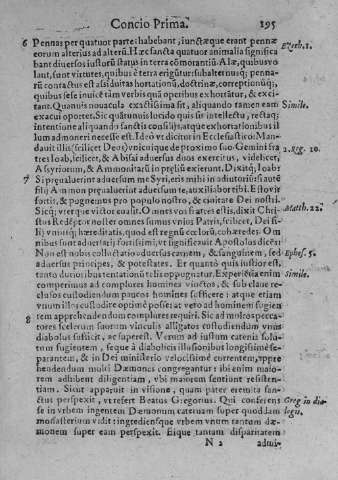 Concio Prima. 195
6 Pennas per quatuor partes habebant, iunctæque erant pennæ
eorum alterius ad alterũ. Hæc sancta quatuor animalia significa Ezech. 1.
bant diuersos iustorũ status in terra cõmorantiũ. Alæ, quibus vo
lant, sunt virtutes, quibus è terra erigũtur subalternuq; penna-
rũ contactus est assiduitas hortationũ, doctrinæ, correptionũq;,
quibus sese inuicẽ tàm verbis quã operibus exhortãtur, & exci-
tant. Quamuis nouacula exactissima sit, aliquando tamen eam Simile.
exacui oportet. Sic quãtumuis lucido quis sit intellectu, rectaq;
intentione aliquando sanctis consilijs, atque exhortationibus il
lum admoneri necesse est. Ideò vt dicitur in Ecclesiastico: Man-
dauit illis (scilicet Deus) vnicuique de proximo suo. Gemini fra 2. Reg. 10.
tres Ioab, scilicet, & Abisai aduersus duos exercitus, videlicet,
Assyriorum, & Ammonitarũ in prælijs exierunt. Dixitq; Ioab:
7 Si præualuerint aduersum me Syri, eris mihi in adiutoriũ: si autẽ
filij Ammon præualuerint aduersum te, auxiliabor tibi. Esto vir
fortis, & pugnemus pro populo nostro, & ciuitate Dei nostri.
Sicq; vterque victor euasit. Omnes vos fratres estis, dixit Chri- Matth. 22.
stus Redẽptor noster omnes sumus vnius Patris, scilicet, Dei fi-
lij vnicũq; hæreditatis, quod est regnũ cœlorũ, cohæredes. Om
nibus sunt aduersarij fortissimi, vt significauit Apostolus dicẽs:
Non est nobis colluctatio aduersus carnem, & sanguinem, sed Ephes. 5.
aduersus principes, & potestates. Et quantò quis iustior est,
tantò durioribus tentationũ telis oppugnatur. Experiẽtia enim Simile.
comperimus ad complures homines vinctos, & sub claue re-
clusos custodiendum paucos homines sufficere: atque etiam
vnum illos custodire optimè posse: at verò ad hominem fugien
8 tem apprehendendum complures requiri. Sic ad multos pecca-
tores scelerum suorum vinculis alligatos custodiendum vnus
diabolus sufficit, ac superest. Verùm ad iustum catenis solu-
tum fugientem, seque à diabolicis illusionibus longissimè se-
parantem, & in Dei ministerio velocissimè currentem, appre
hendendum multi Dæmones congregantur: ibi enim maio-
rem adhibent diligentiam, vbi maiorem sentiunt resisten-
tiam. Sicut apparuit in visione, quam pater eremita san-
ctus perspexit, vt refert Beatus Gregorius. Qui conferens Greg in dia-
se in vrbem ingentem Dæmonum cateruam super quoddam logis.
monasterium vidit: ingrediensque vrbem vnum tantum dæ-
monem super eam perspexit. Eique tantam disparitatem
N 2 admi-